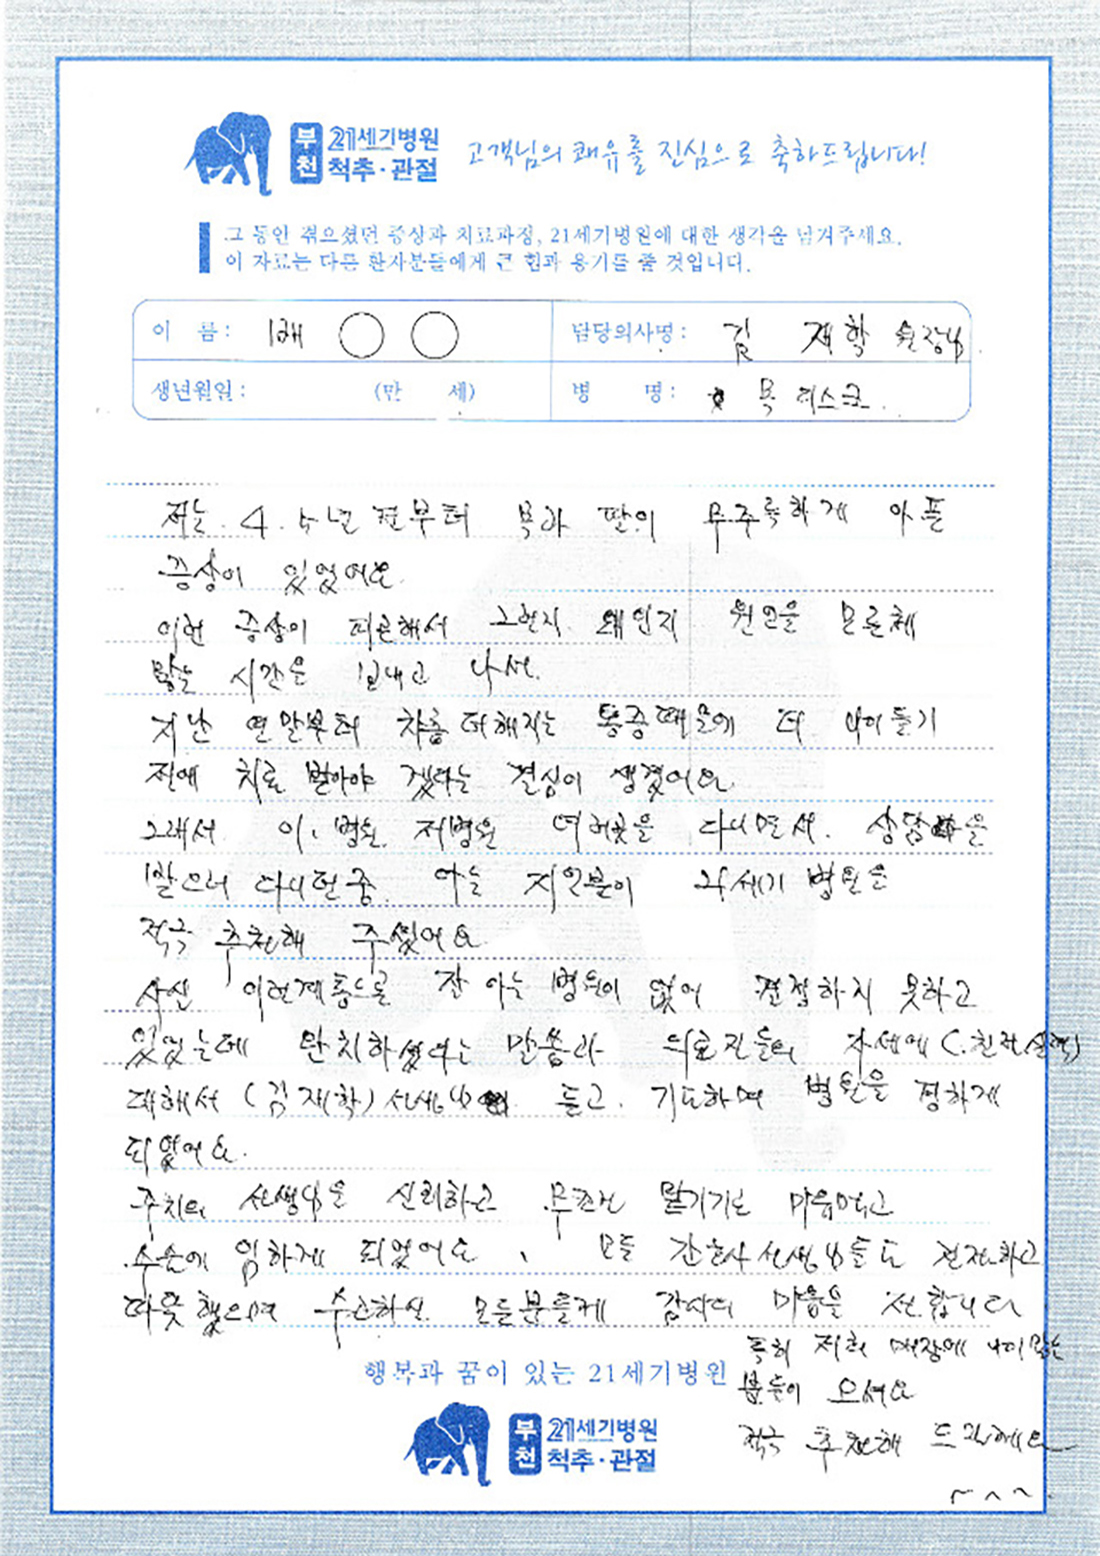 부천 21세기병원 척추·관절 고객님의 쾌유를 진심으로 축하드립니다!
그 동안 겪으셨던 증상과 치료과정, 21세기병원에 대한 생각을 남겨주세요.
이 자료는 다른 환자분들에게 큰 힘과 용기를 줄 것입니다.
이 름 : 배 ○ ○ 담당의사명 : 김 재학 원장님
생년월일 : (만 세) 병 명 : 목 디스크.
저는. 4. 5년 전부터 목과 팔의 무주룩하게 아픈
증상이 있었어요.
이런 증상이 피곤해서 그런지 왜인지 원인을 모른체
많는 시간을 보내고 나서.
지난 연말부터 차츰 더해지는 통증때문에 더 나이들기
전에 치료 받아야 겠다는 결심이 생겼어요
그래서 이. 병원. 저병원 여러곳을 다니면서. 상담을
받으러 다니던중. 아는 지인분이 21세기 병원을
적극 추천해 주셨어요
사실 이런계통으로 잘 아는 병원이 없어 결정하지 못하고
있었는데 완치하셨다는 말씀과 의료진들의 자세에 (친절,실력)
대해서 (김재학) 선생님 듣고. 기도하며 병원을 정하게
되었어요.
주치의 선생님을 신뢰하고 무조건 맡기기로 마음먹고
수술에 임하게 되었어요. 모든 간호사 선생님들도 친절하고
따뜻했으며 수고하신 모든분들께 감사의 마음을 전합니다
특히 저희 매장에 나이 많은
분들이 오셔요
적극 추천해 드릴께요
~^~.
행복과 꿈이 있는 21세기병원
부천 21세기병원 척추·관절